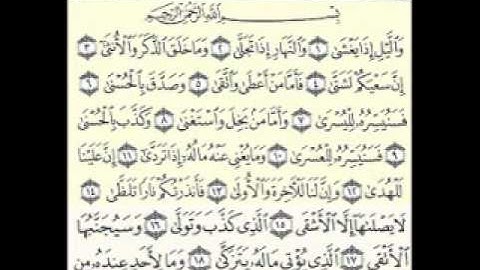 بِسْمِ ٱللَّهِ ٱلرَّحْمَٰنِ ٱلرَّحِيمِ
وَٱلَّيْلِ إِذَا يَغْشَىٰ ١ وَٱلنَّهَارِ إِذَا تَجَلَّىٰ ٢ وَمَا خَلَقَ ٱلذَّكَرَ وَٱلْأُنثَىٰ ٣
إِنَّ سَعْيَكُمْ لَشَتَّىٰ ٤ فَأَمَّا مَنْ أَعْطَىٰ وَٱتَّقَىٰ ٥ وَصَدَّقَ بِٱلْحُسْنَىٰ ٦
فَسَنُيَسِّرُهُۥ لِلْيُسْرَىٰ ٧ وَأَمَّا مَنۢ بَخِلَ وَٱسْتَغْنَىٰ ٨ وَكَذَّبَ بِٱلْحُسْنَىٰ
٩ فَسَنُيَسِّرُهُۥ لِلْعُسْرَىٰ ١٠ وَمَا يُغْنِى عَنْهُ مَالُهُۥٓ إِذَا تَرَدَّىٰٓ ١١ إِنَّ عَلَيْنَا
لَلْهُدَىٰ ١٢ وَإِنَّ لَنَا لَلْءَاخِرَةَ وَٱلْأُولَىٰ ١٣ فَأَنذَرْتُكُمْ نَارًا تَلَظَّىٰ ١٤
لَا يَصْلَىٰهَآ إِلَّا ٱلْأَشْقَى ١٥ ٱلَّذِى كَذَّبَ وَتَوَلَّىٰ ١٦ وَسَيُجَنَّبُهَا
ٱلْأَتْقَى ١٧ ٱلَّذِى يُؤْتِى مَالَهُۥ يَتَزَكَّىٰ ١٨ وَمَا لِأَحَدٍ عِندَهُۥ مِن